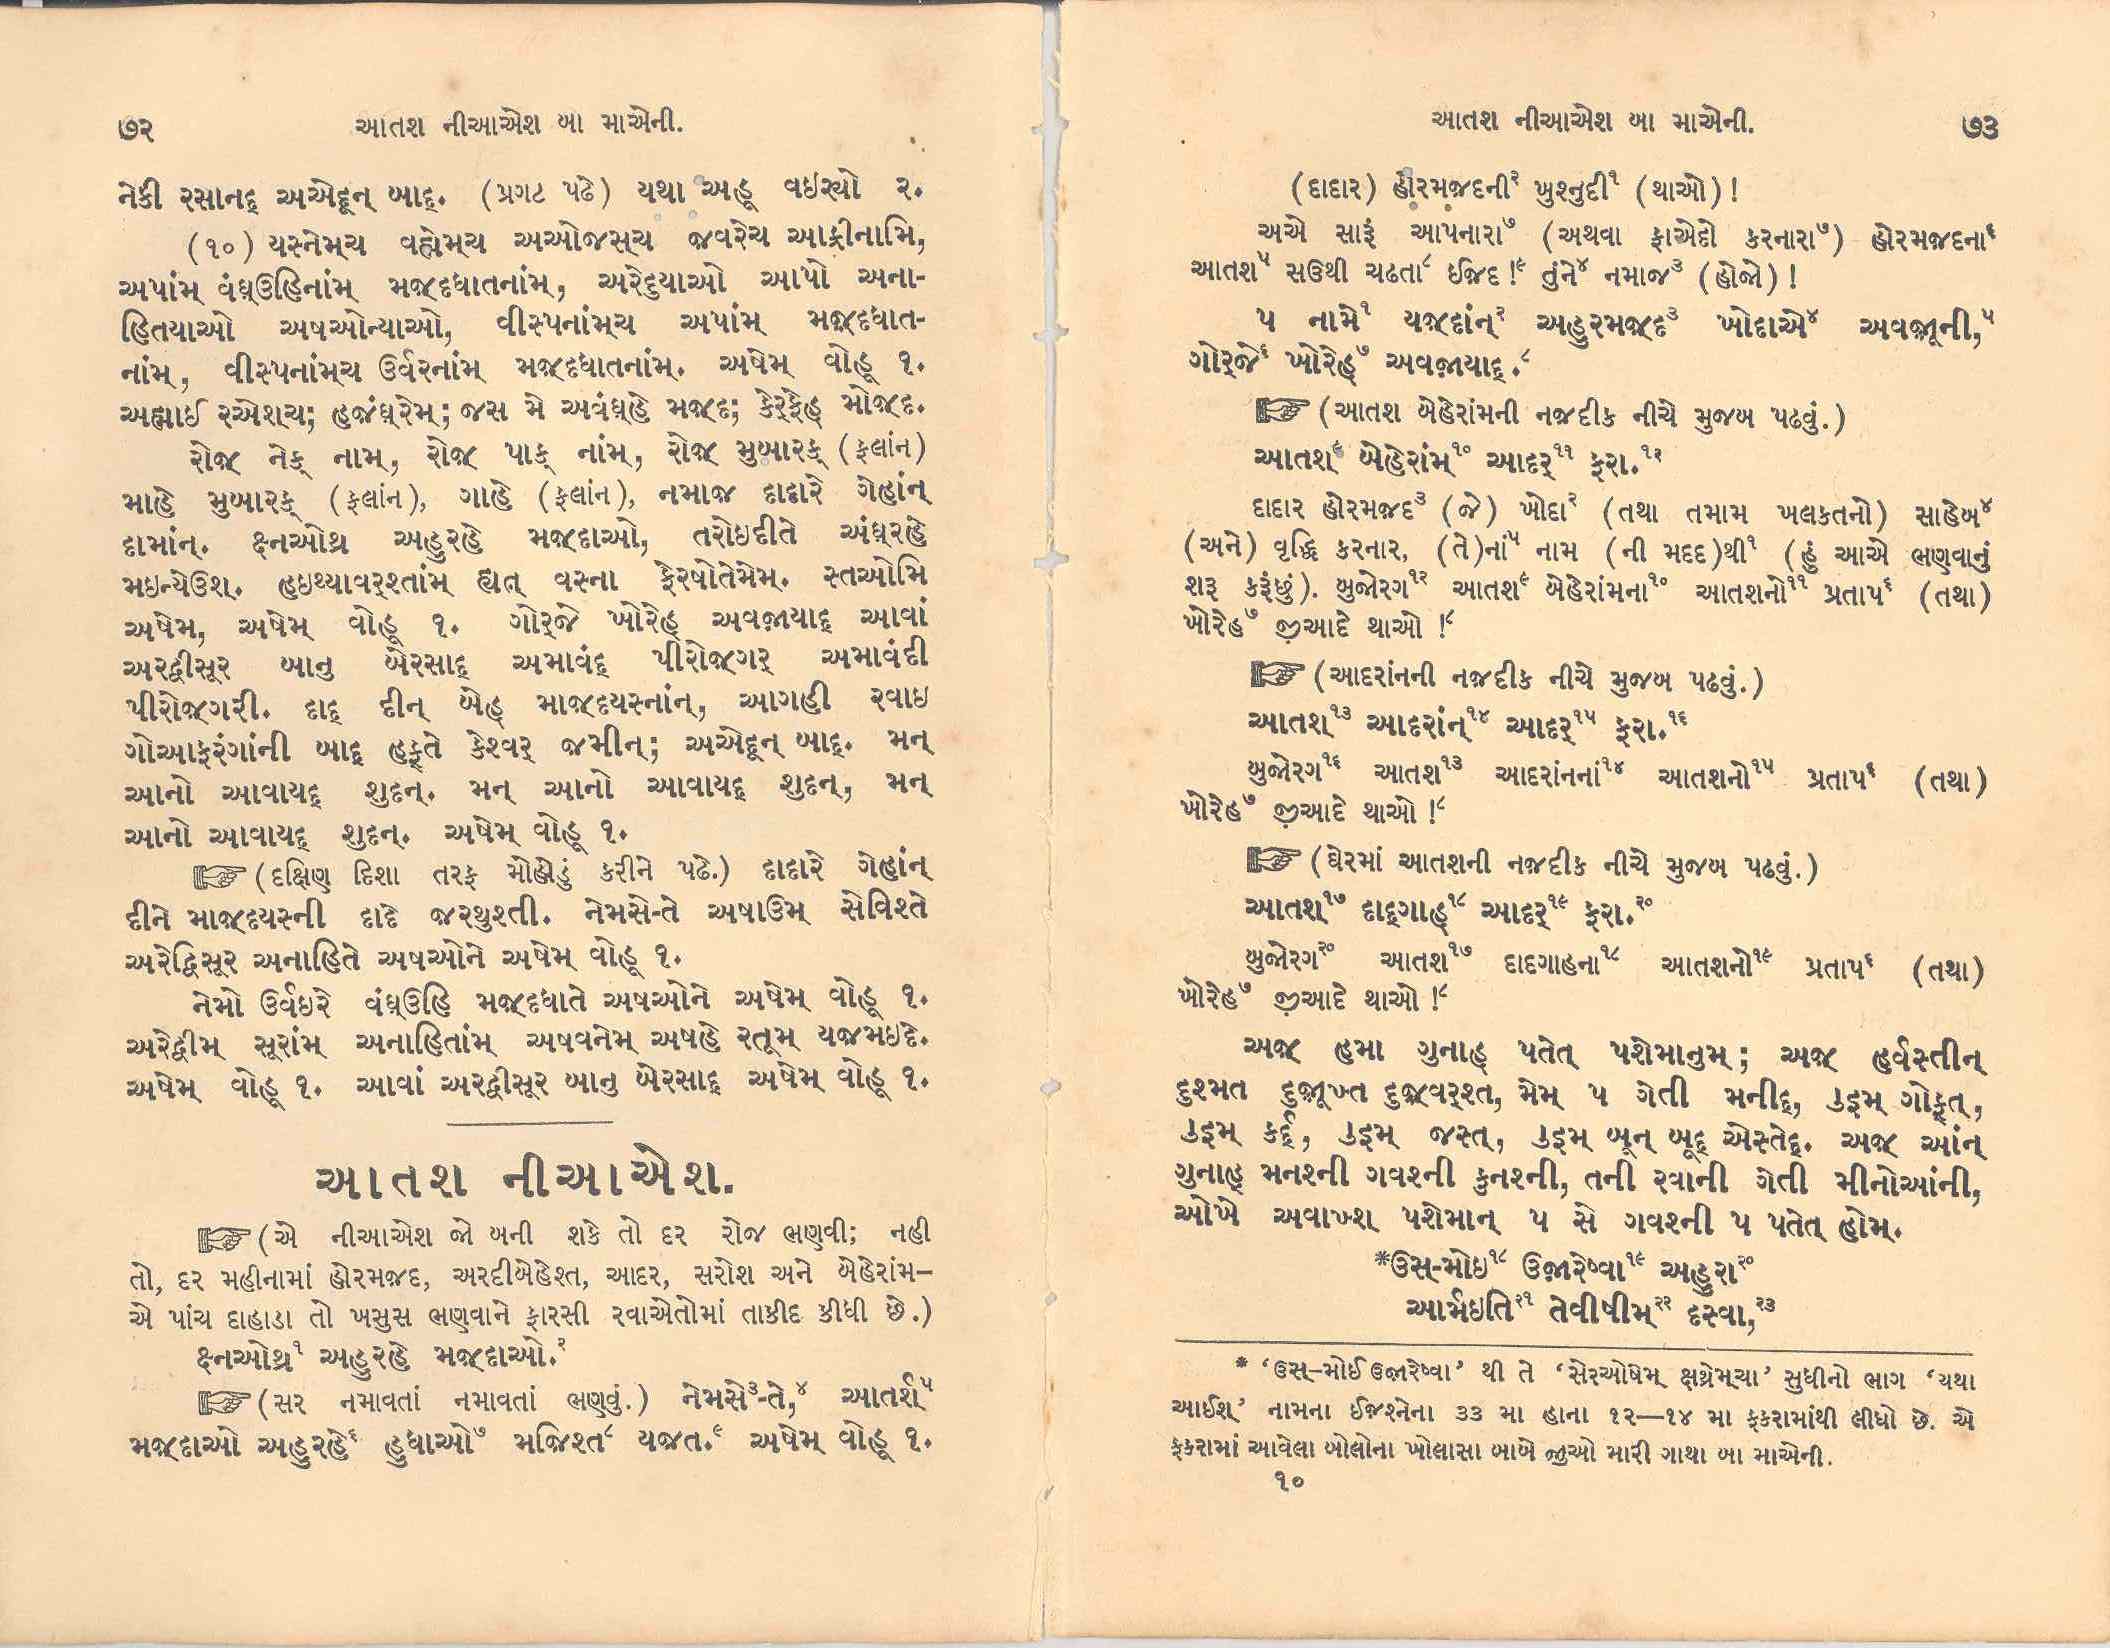 ૭૨
આતશ નીઆએશ બા માએની.
નેકી રસાનદ્ અએદૂન્ બાદ્. (પ્રગટ પઢે) યથા અહૂ વઇર્યો ૨.
(૧૦) યસ્નેમ્ચ વહ્મેમ્ચ અઓજસ્ચ જવરેચ આફ્રીનામિ,
અપાંમ્ વંઘ્ઉહિનાંમ્ મજ઼્દધાતનાંમ્, અરેદુયાઓ આપો અના-
હિતયાઓ અષઓન્યાઓ, વીસ્પનાંમ્ચ અપાંમ્ મજ઼્દધાત-
નાંમ્, વીસ્પનાંમ્ચ ઉર્વરનાંમ્ મજ઼્દધાતનાંમ્. અષેમ્ વોહૂ ૧.
અહ્માઈ રએશ્ચ; હજ઼ંઘ્રેમ્; જસ મે અવંઘ્હે મજ઼્દ; કેર્ફેહ્ મોજ઼્દ.
રોજ઼ નેક્ નામ્, રોજ઼ પાક્ નાંમ્, રોજ઼ મુબારક્ (ફલાંન)
માહે મુબારક્ (ફલાંન), ગાહે (ફલાંન), નમાજ઼ દાદારે ગેહાંન્
દામાંન્. ક્ષ્નઓથ્ર અહુરહે મજ઼્દાઓ, તરોઇદીતે અંઘ્રહે
મઇન્યેઉશ્. હઇથ્યાવર્શ્તાંમ્ હ્યત્ વસ્ના ફેરષોતેમેમ્. સ્તઓમિ
અષેમ્, અષેમ્ વોહૂ ૧. ગોર્જે ખોરેહ્ અવજ઼ાયાદ્ આવાં
અરદ્વીસૂર બાનુ બેરસાદ્ અમાવંદ્ પીરોજ઼્ગર્ અમાવંદી
પીરોજ઼્ગરી. દાદ્ દીન્ બેહ્ માજ઼્દયસ્નાંન્, આગહી રવાઇ
ગોઆફરંગાંની બાદ્ હફ્તે કેશ્વર્ જ઼મીન્; અએદૂન્ બાદ્. મન્
આનો આવાયદ્ શુદન્. મન્ આનો આવાયદ્ શુદન્, મન્
આનો આવાયદ્ શુદન્. અષેમ્ વોહૂ ૧.
☞ (દક્ષિણ દિશા તરફ મોહોડું કરીને પઢે.) દાદારે ગેહાંન્
દીને માજ઼્દયસ્ની દાદે જ઼રથુશ્તી. નેમસે-તે અષાઉમ્ સેવિશ્તે
અરેદ્વિસૂર અનાહિતે અષઓને અષેમ્ વોહૂ ૧.
નેમો ઉર્વઇરે વંઘ્ઉહિ મજ઼્દધાતે અષઓને અષેમ્ વોહૂ ૧.
અરેદ્વીમ્ સૂરાંમ્ અનાહિતાંમ્ અષવનેમ્ અષહે રતૂમ્ યજ઼મઇદે.
અષેમ્ વોહૂ ૧. આવાં અરદ્વીસૂર બાનુ બેરસાદ્ અષેમ્ વોહૂ ૧.
આતશ નીઆએશ.
☞ (એ નીઆએશ જો બની શકે તો દર રોજ ભણવી; નહી
તો, દર મહીનામાં હોરમજ઼દ, અરદીબેહેશ્ત, આદર, સરોશ અને બેહેરાંમ—
એ પાંચ દાહાડા તો ખસુસ ભણવાને ફારસી રવાએતોમાં તાકીદ કીધી છે.)
ક્ષ્નઓથ્ર૧ અહુરહે મજ઼્દાઓ.૨
☞ (સર નમાવતાં નમાવતાં ભણવું.) નેમસે૩-તે,૪ આતર્શ્૫
મજ઼્દાઓ અહુરહે૬ હુધાઓ૭ મજ઼િશ્ત૮ યજ઼ત.૯ અષેમ્ વોહૂ ૧.
આતશ નીઆએશ બા માએની.
૭૩
(દાદાર) હોરમજ઼દની૨ ખુશ્નુદી૧ (થાઓ)!
અએ સારૂં આપનારા૭ (અથવા ફાએદો કરનારા૭) હોરમજ઼દના૬
આતશ૫ સઉથી ચઢતા૮ ઈજ઼દ !૯ તુંને૪ નમાજ૩ (હોજો)!
પ નામે૧ યજ઼દાંન્૨ અહુરમજ઼્દ૩ ખોદાએ૪ અવજ઼ૂની,૫
ગોર્જે૬ ખોરેહ્૭ અવજ઼ાયાદ્.૮
☞ (આતશ બેહેરાંમની નજ઼દીક નીચે મુજબ પઢવું.)
આતશ્૯ બેહેરાંમ્૧૦ આદર્૧૧ ફ્રા.૧૨
દાદાર હોરમજ઼દ૩ (જે) ખોદા૨ (તથા તમામ ખલકતનો) સાહેબ૪
(અને) વૃદ્ધિ કરનાર, (તે)નાં૫ નામ (ની મદદ)થી૧ (હું આએ ભણવાનું
શરૂ કરૂંછું). બુજોરગ૧૨ આતશ૯ બેહેરાંમના૧૦ આતશનો૧૧ પ્રતાપ૬ (તથા)
ખોરેહ૭ જ઼ીઆદે થાઓ !૮
☞ (આદરાંનની નજ઼દીક નીચે મુજબ પઢવું.)
આતશ્૧૩ આદરાંન્૧૪ આદર્૧૫ ફ્રા.૧૬
બુજોરગ૧૬ આતશ૧૩ આદરાંનનાં૧૪ આતશનો૧૫ પ્રતાપ૬ (તથા)
ખોરેહ૭ જ઼ીઆદે થાઓ !૮
☞ (ઘેરમાં આતશની નજ઼દીક નીચે મુજબ પઢવું.)
આતશ્૧૭ દાદ્ગાહ્૧૮ આદર્૧૯ ફ્રા.૨૦
બુજોરગ૨૦ આતશ૧૭ દાદગાહના૧૮ આતશનો૧૯ પ્રતાપ૬ (તથા)
ખોરેહ૭ જ઼ીઆદે થાઓ !૮
અજ઼ હમા ગુનાહ્ પતેત્ પશેમાનુમ્; અજ઼ હર્વસ્તીન્
દુશ્મત દુજ઼ૂખ્ત દુજ઼્વર્શ્ત, મેમ્ પ ગેતી મનીદ્, ઉઇમ્ ગોફ્ત્,
ઉઇમ્ કર્દ્, ઉઇમ્ જસ્ત્, ઉઇમ્ બૂન્ બૂદ્ એસ્તેદ્. અજ઼ આંન્
ગુનાહ્ મનશ્ની ગવશ્ની કુનશ્ની, તની રવાની ગેતી મીનોઆંની,
ઓખે અવાખ્શ્ પશેમાન્ પ સે ગવશ્ની પ પતેત્ હોમ્.
*ઉસ્-મોઇ૧૮ ઉજ઼ારેષ્વા૧૯ અહુરા૨૦
આર્મઇતિ૨૧ તેવીષીમ્૨૨ દસ્વા,૨૩
* ‘ઉસ્-મોઈ ઉજ઼ારેષ્વા’ થી તે ‘સેરઓષેમ્ ક્ષથ્રેમ્ચા’ સુધીનો ભાગ ‘યથા
આઈશ્’ નામના ઈજ઼શ્નેના ૩૩ મા હાના ૧૨—૧૪ મા ફકરામાંથી લીધો છે. એ
ફકરામાં આવેલા બોલોના ખોલાસા બાબે જ઼ીઓ મારી ગાથા બા માએની.
૧૦